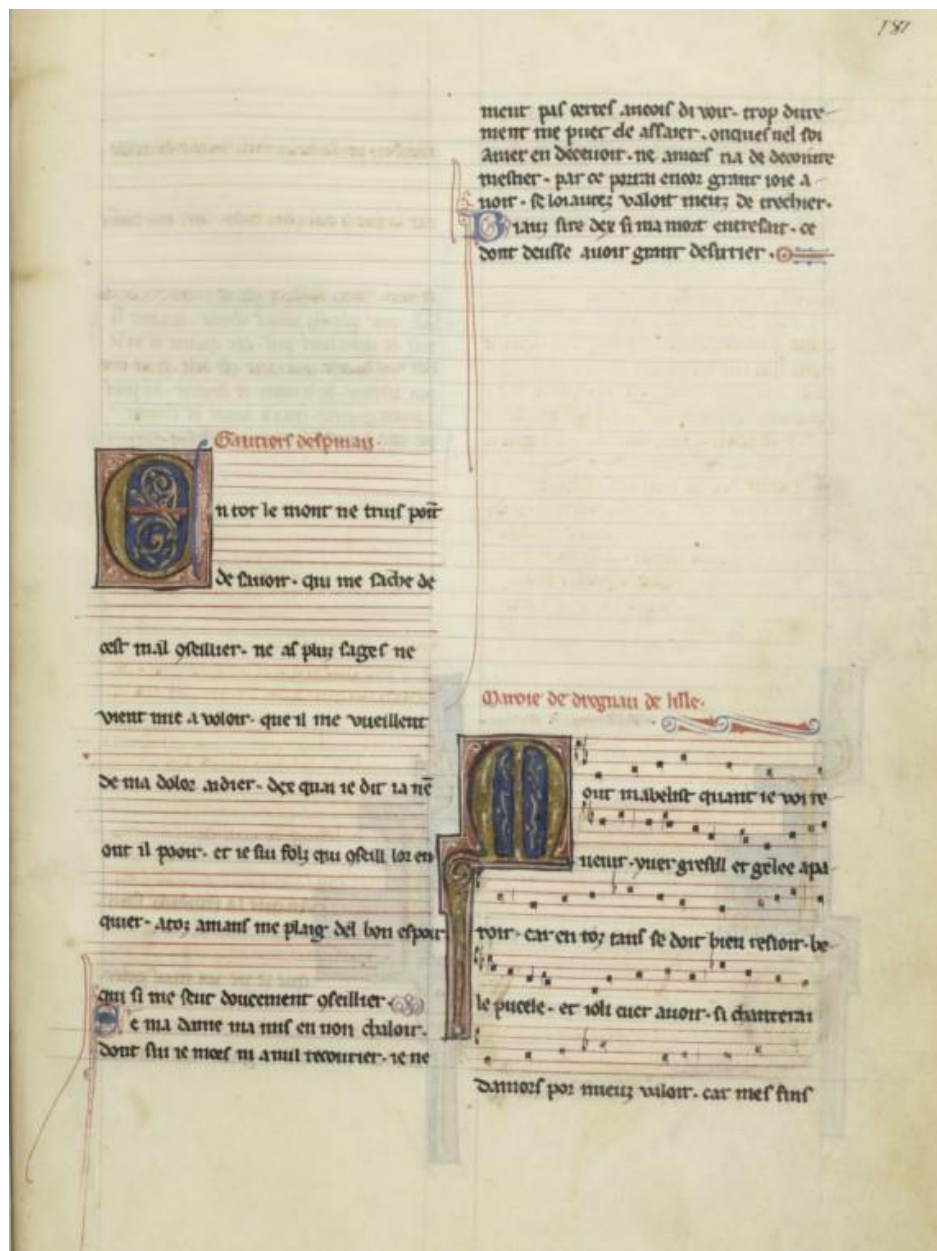 181
Gautiers despinau.
En tot le mont ne truis point
de savoir. qui me sache de
cest mal ꝯseillier. ne as pluz sages ne
vient mie a voloir. que il me vueillent
de ma dolor aidier. dex quai ie dit ia nē
ont il pooir. et ie sui folz qui ꝯseill lor en
quier. atoz amans me plaig del bon espoir
qui si me seut doucement ꝯseillier.
De ma dame ma mis en non chaloir.
dont sui ie mors ni a nul recourier. ie ne
ment pas certes ancois di voir. trop dure
ment me puet ele assaier. onques nel soi
amer en decevoir. ne amors na de
mestier. par ce porrai encor grant ioie a
voir. se loiautez valoit meuz de trechier.
Biauz sire dex si ma mort entresait. ce
dont deusse avoir grant desirrier.
Maroie de dregnau de lille.
Mout mabelist quant ie voi re
venir. yver gresill et gelee apa
roir. car en toz tans se doit bien resioir. be
le pucele. et ioli cuer avoir. si chanterai
damors por mieuz valoir. car mes fins